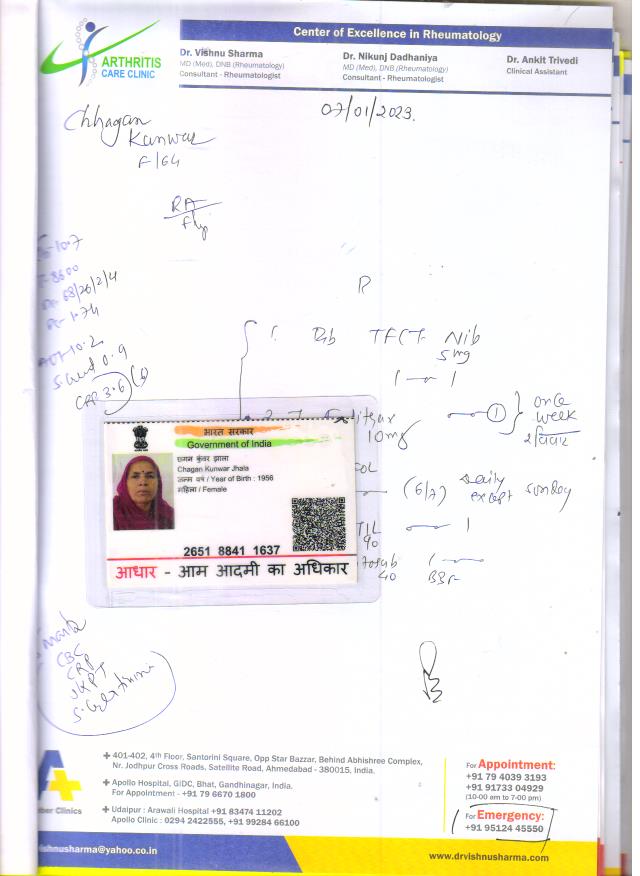 Center of Excellence in Rheumatology
ARTHRITIS
CARE CLINIC
Dr. Vishnu Sharma
MD (Med), DNB (Rheumatology)
Consultant - Rheumatologist
Dr. Nikunj Dadhaniya
MD (Med), DNB (Rheumatology)
Consultant - Rheumatologist
Dr. Ankit Trivedi
Clinical Assistant
Chhagan
Kanwar
F/64
07/01/2023.
RA
10.7
8600
68/26/2/4
1.74
10.2
0.9
CRP 3.6
R
1. Tab TFCT Nib
5mg
1 — 1
2. T.
10mg
1
once
week
(6/7) daily
except sunday
TIL
90
1
40
BBF
भारत सरकार
Government of India
छगन कुंवर झाला
Chagan Kunwar Jhala
जन्म वर्ष / Year of Birth : 1956
महिला / Female
2651 8841 1637
आधार - आम आदमी का अधिकार
CBC
CRP
S. Creatinine
401-402, 4th Floor, Santorini Square, Opp Star Bazzar, Behind Abhishree Complex,
Nr. Jodhpur Cross Roads, Satellite Road, Ahmedabad - 380015, India.
Apollo Hospital, GIDC, Bhat, Gandhinagar, India.
For Appointment - +91 79 6670 1800
Udaipur : Arawali Hospital +91 83474 11202
Apollo Clinic : 0294 2422555, +91 99284 66100
ber Clinics
For Appointment:
+91 79 4039 3193
+91 91733 04929
(10-00 am to 7-00 pm)
For Emergency:
+91 95124 45550
ishnusharma@yahoo.co.in
www.drvishnusharma.com